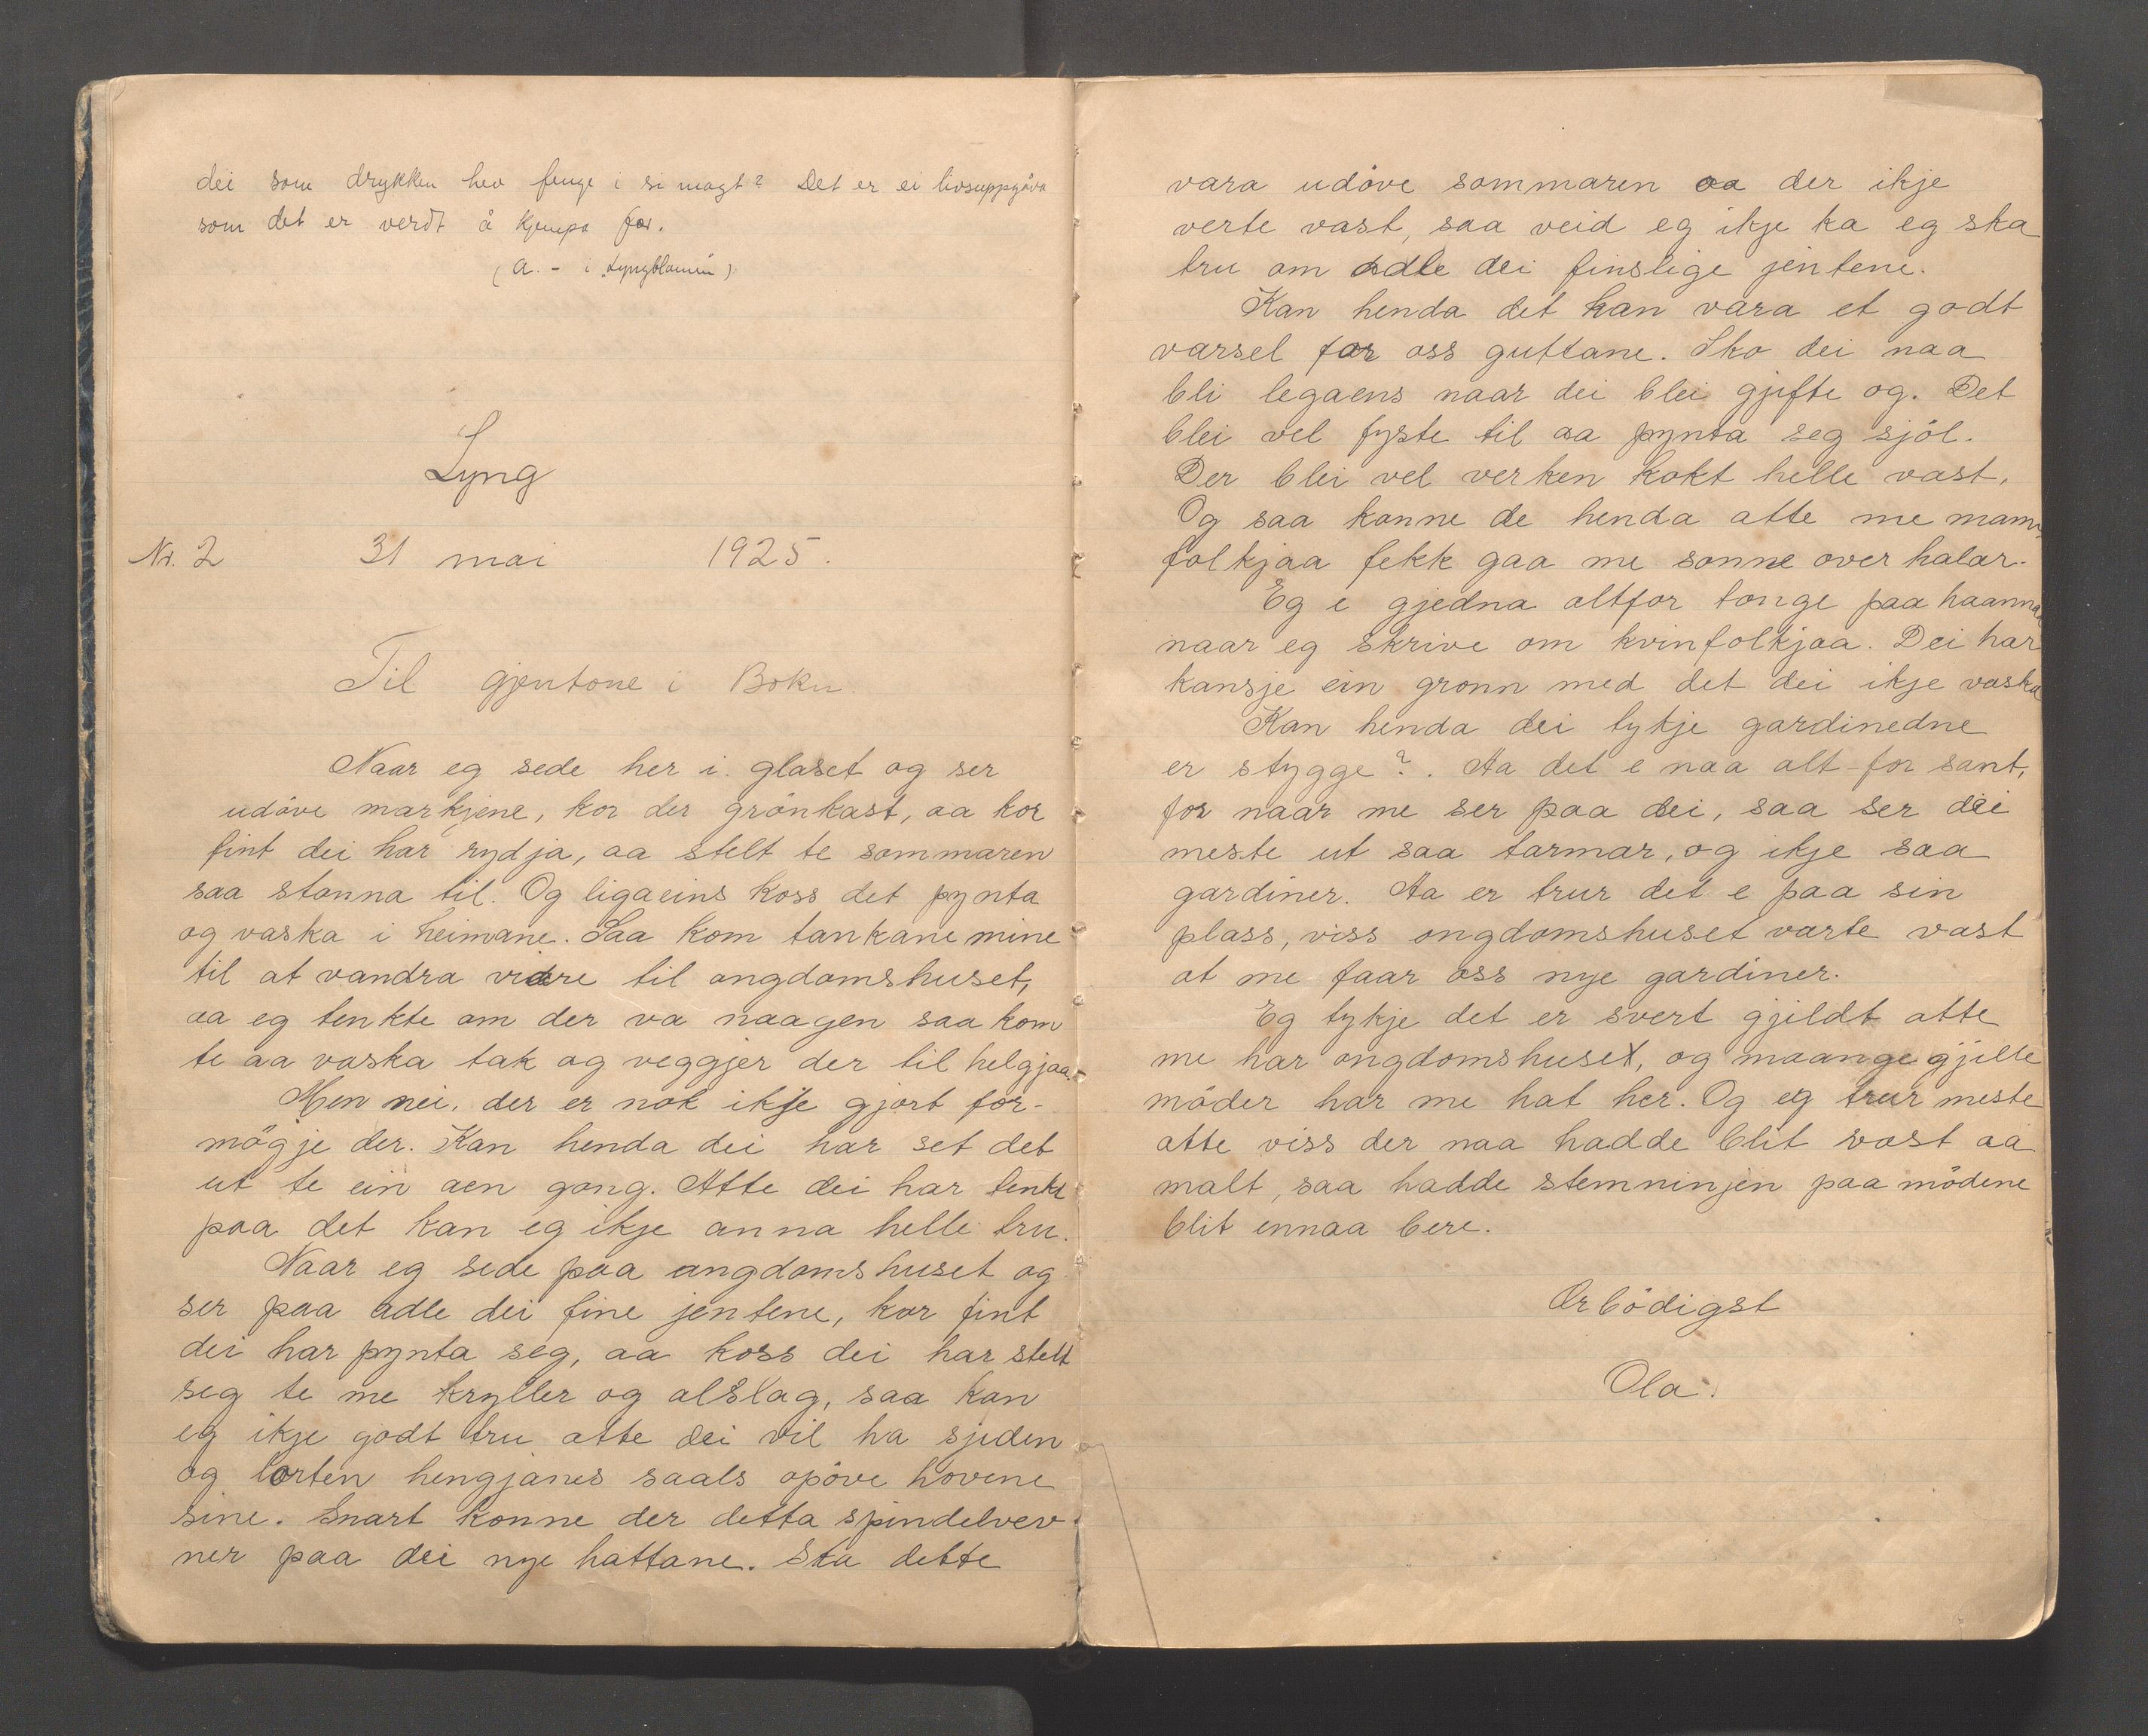 dei som drykken hev fenge i si magt? Det er ei livsuppgåva
som det er verdt å kjempa for.
(a. - i "Lyngblomen")
Lyng
Nr. 2 31 mai 1925.
Til gjentone i Bokn
Naar eg sede her i glaset og ser
udöve markjene, kor der grönkast, aa kor
fint dei har rydja, aa stelt te sommaren
saa stonna til. Og ligaeins koss det pynta
og vaska i heimane. Saa kom tankane mine
til at vandra vidare til ongdomshuset,
aa eg tenkte om der va naagen saa kom
te aa vaska tak og veggjer der til helgjaa.
Men nei, der er nok ikje gjort for-
mögje der. Kan henda dei har set det
ut te ein aen gong. Atte dei har tenkt
paa det kan eg ikje anna helle tru.
Naar eg sede paa ongdomshuset og
ser paa adle dei fine jentene, kor fint
dei har pynta seg, aa koss dei har stelt
seg te me kryller og alslag, saa kan
eg ikje godt tru atte dei vil ha sjeden
og lorten hengjanes saals opöve hovene
sine. Snart konne der detta spindelvev-
ner paa dei nye hattane. Ska dette
vara udöve sommaren aa der ikje
verte vast, saa veid eg ikje ka eg ska
tru om adle dei finslige jentene.
Kan henda det kan vara et godt
varsel for oss guttane. Sko dei naa
bli legaens naar dei blei gjifte og. Det
blei vel fyste til aa pynta seg sjöl.
Der blei vel verken kokt helle vast.
Og saa konne de henda atte me mann-
folkjaa fekk gaa me sonne over halar.
Eg e gjedna altfor tonge paa haanna
naar eg skrive om kvinfolkjaa. Dei har
kansje ein gronn med det dei ikje vaska
Kan henda dei tykje gardinedne
er stygge?. Aa det e naa alt-for sant,
for naar me ser paa dei, saa ser dei
meste ut saa tarmar, og ikje saa
gardiner. Aa er trur det e paa sin
plass, viss ongdomshuset varte vast
at me faar oss nye gardiner.
Eg tykje det er svert gjildt atte
me har ongdomshuset, og maange gjille
möder har me hat her. Og eg trur meste
atte viss der naa hadde blit vast aa
malt, saa hadde stemninjen paa mödene
blit ennaa bere.
Ærbödigst
Ola.